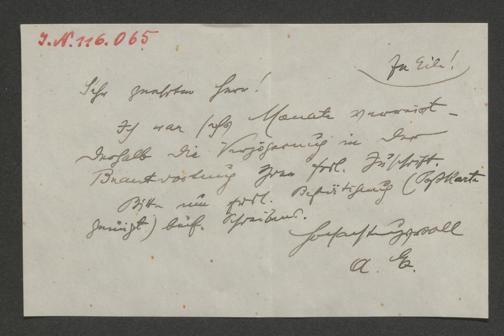 I.N. 116.065
In Eile!
Sehr geehrter Herr!
Ich war sechs Monate verreist –
deshalb die Verzögerung in der
Beantwortung Ihrer frdl. Zuschrift.
Bitte um frdl. Bestätigung (Postkarte
genügt) dies. Schreibens.
Hochachtungsvoll
A. E.